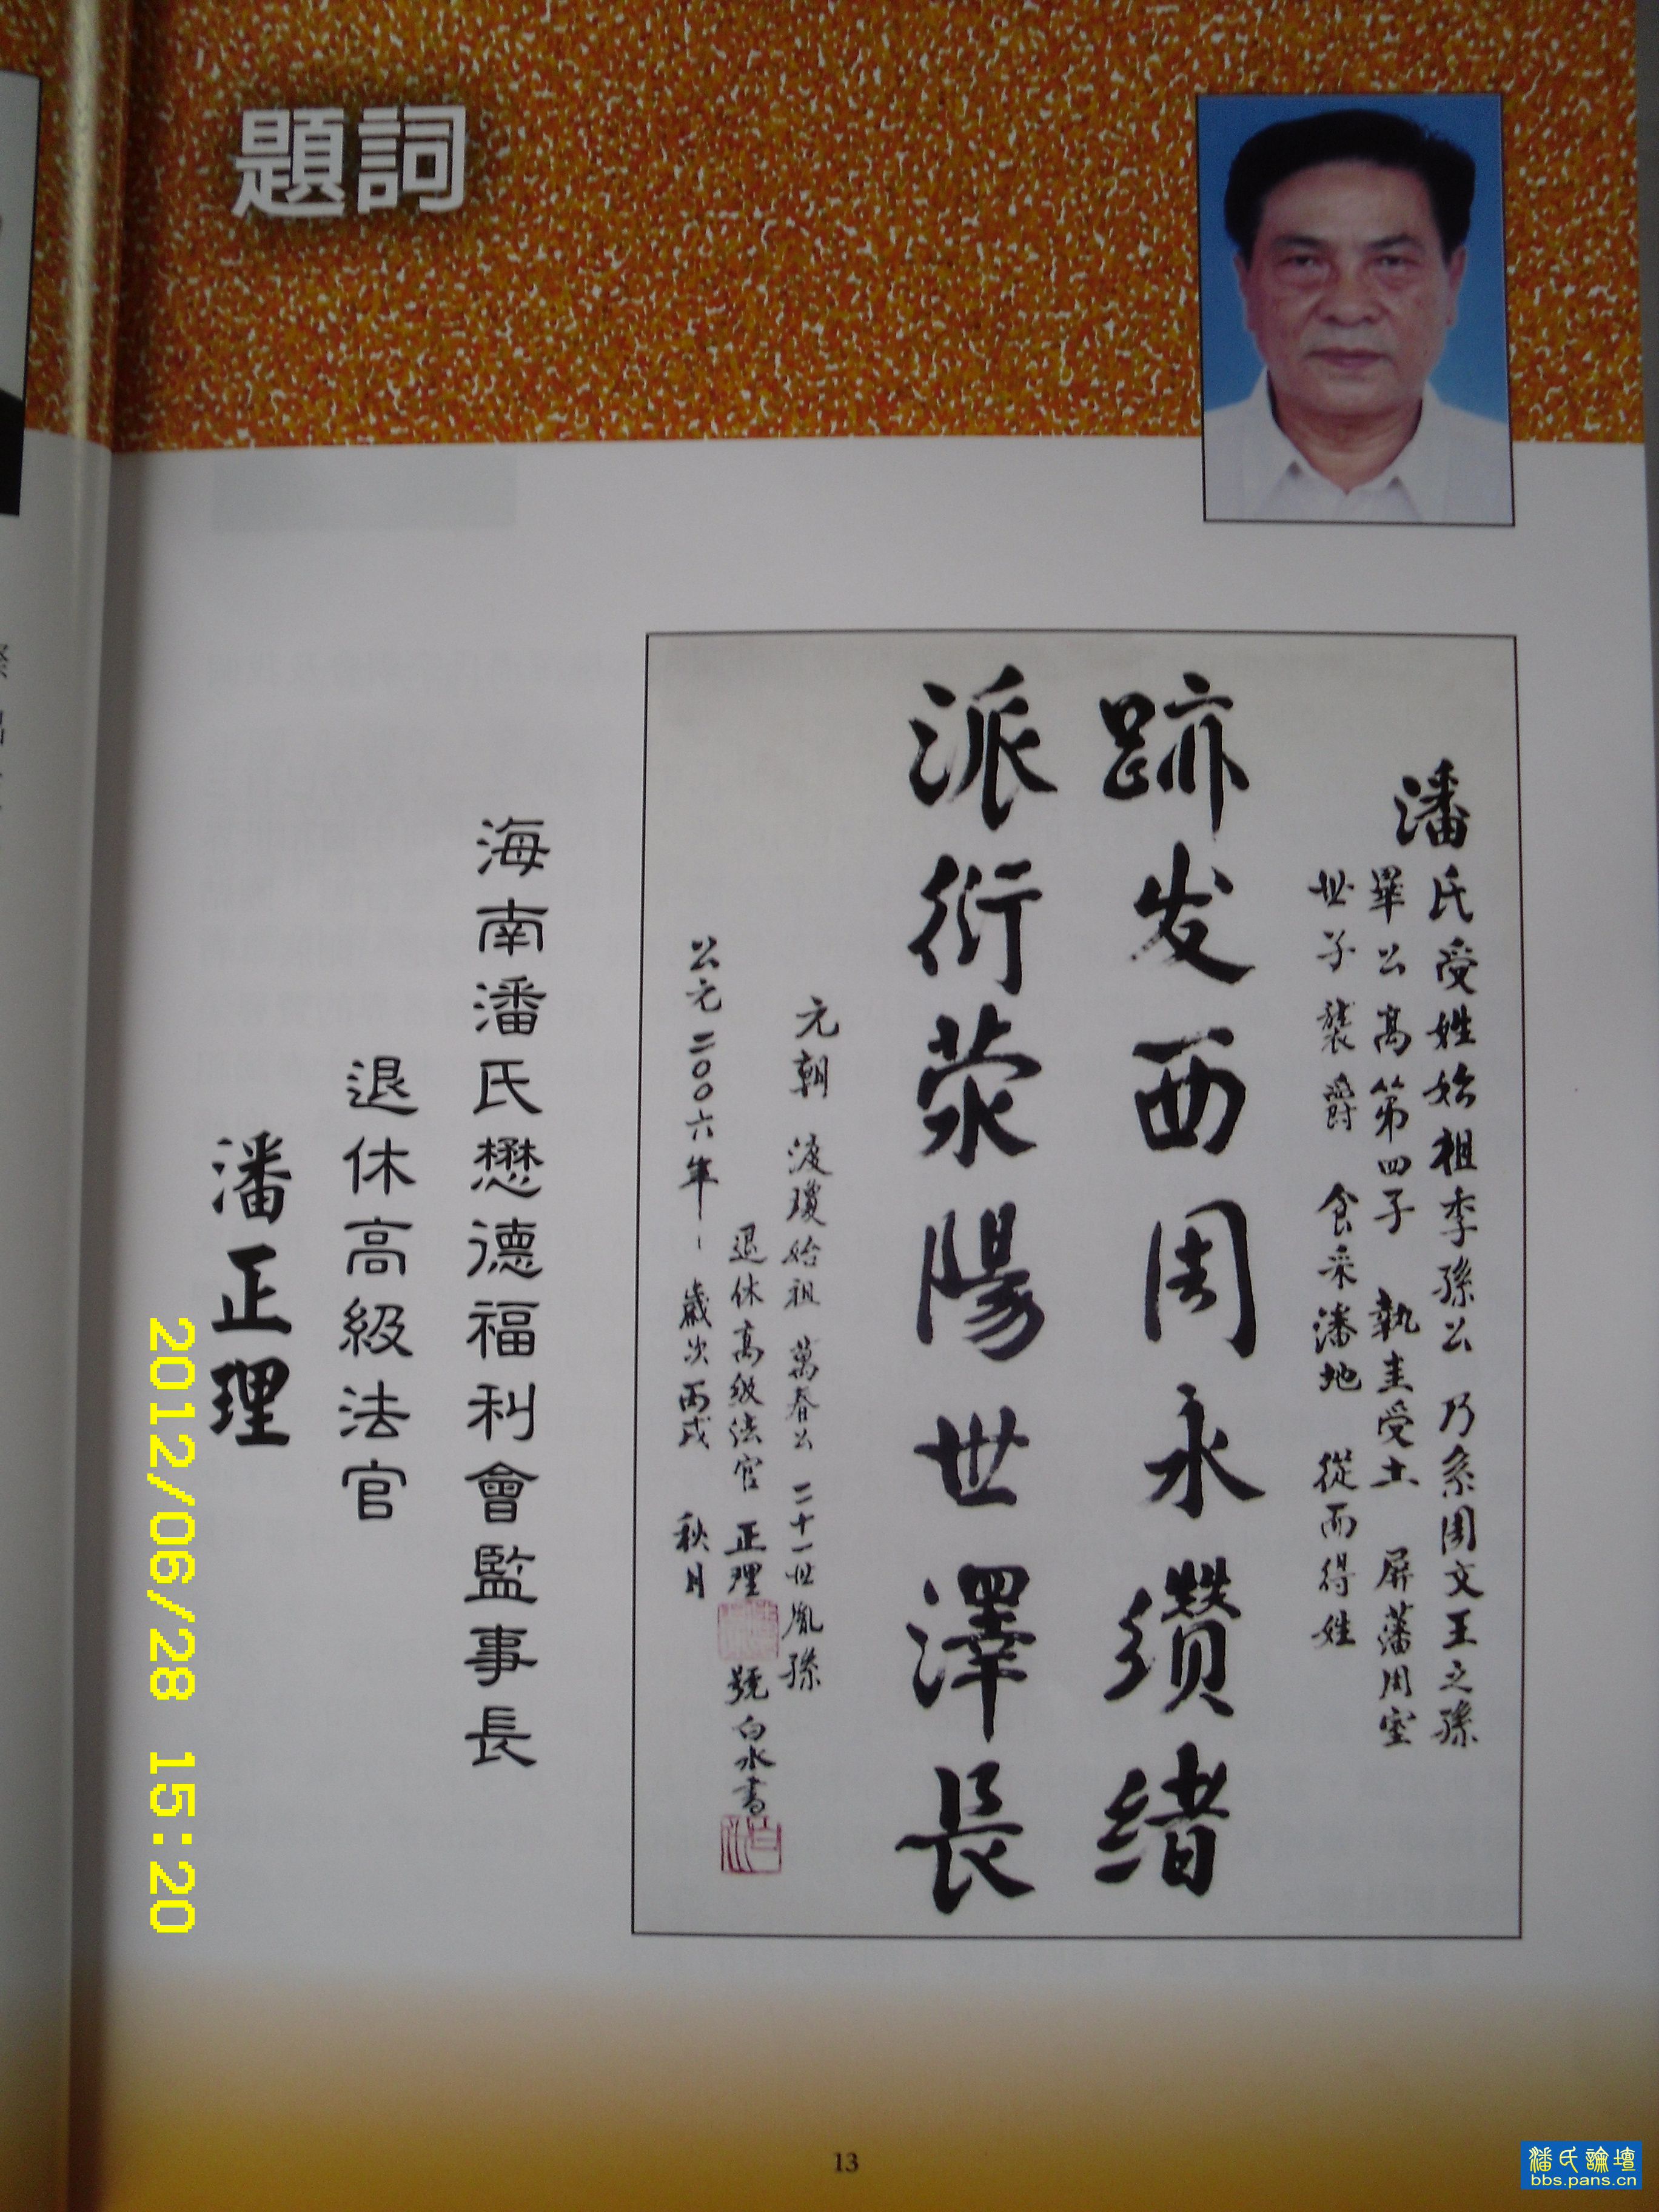 題詞
潘氏受姓始祖季孫公 乃系周文王之孫
畢公高第四子 執圭受土 屏藩周室
世子襲爵 食采潘地 從而得姓
跡发西周永纘緒
派衍荥陽世澤長
元朝 渡瓊始祖 萬春公 二十一世胤孫
退休高级法官 正理 號白水書
公元二００六年 歲次丙戌 秋月
海南潘氏懋德福利會監事長
退休高級法官
潘正理
2012/06/28 15:20
13
潘氏論壇
bbs.pans.cn